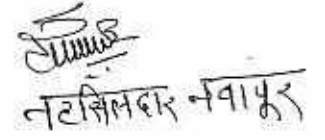 तहसिलदार नवापूर